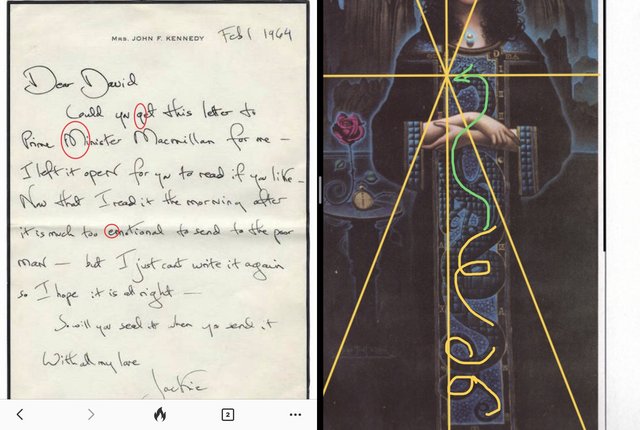 MRS. JOHN F. KENNEDY
Feb 1 1964
Dear David
Could you get this letter to
Prime Minister Macmillan for me —
I left it open for you to read if you like —
Now that I read it the morning after
it is much too emotional to send to the poor
man — but I just cant write it again
so I hope it is all right —
So will you seal it then you send it
With all my love
Jackie
2